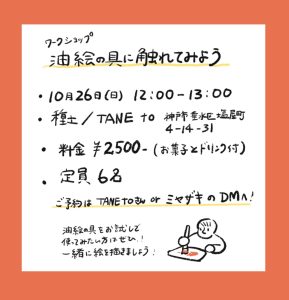 ワークショップ
油絵の具に触れてみよう
・10月26日(日) 12:00-13:00
・種土/TANE to 神戸市垂水区塩屋町
4-14-31
・料金 ¥2500-(お菓子とドリンク付)
・定員 6名
ご予約は TANE toさん or ミヤザキのDMへ!
油絵の具をお試しで
使ってみたい方はぜひ!
一緒に絵を描きましょう!